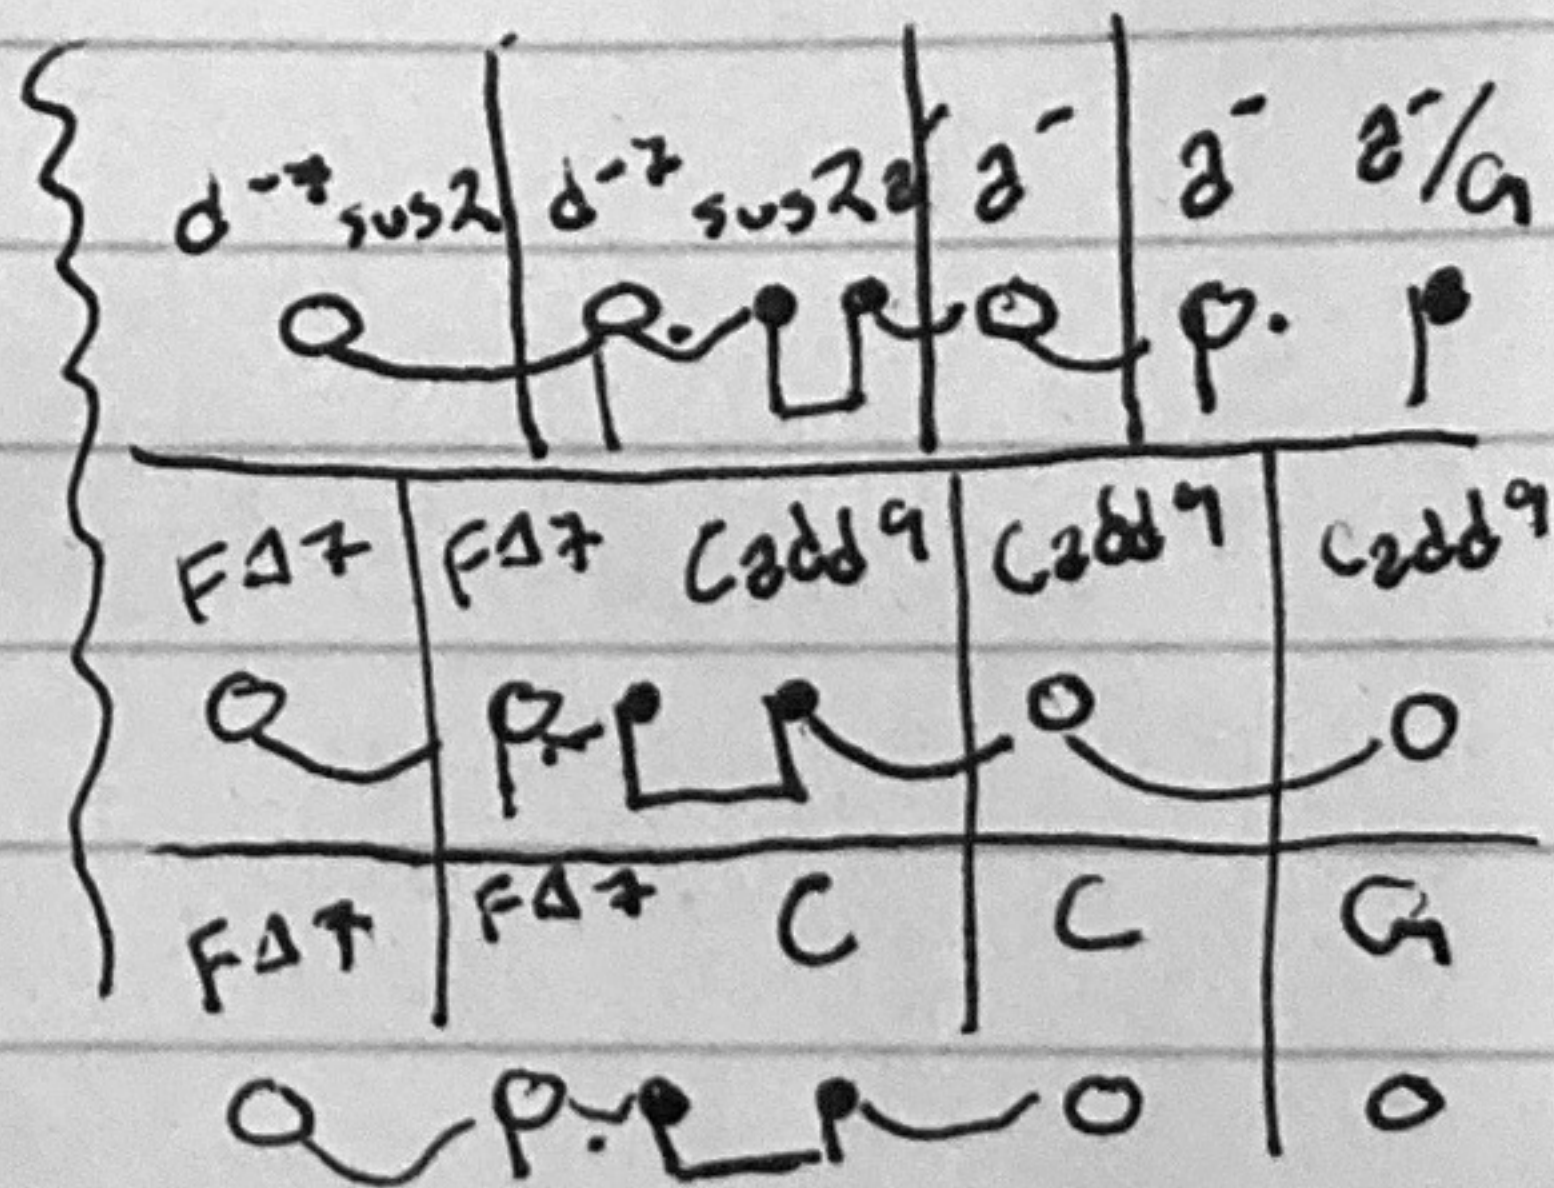 d-7sus2 | d-7sus2 a | a- | a- a-/G
F∆7 | F∆7 Cadd9 | Cadd9 | Cadd9
F∆7 | F∆7 C | C | G